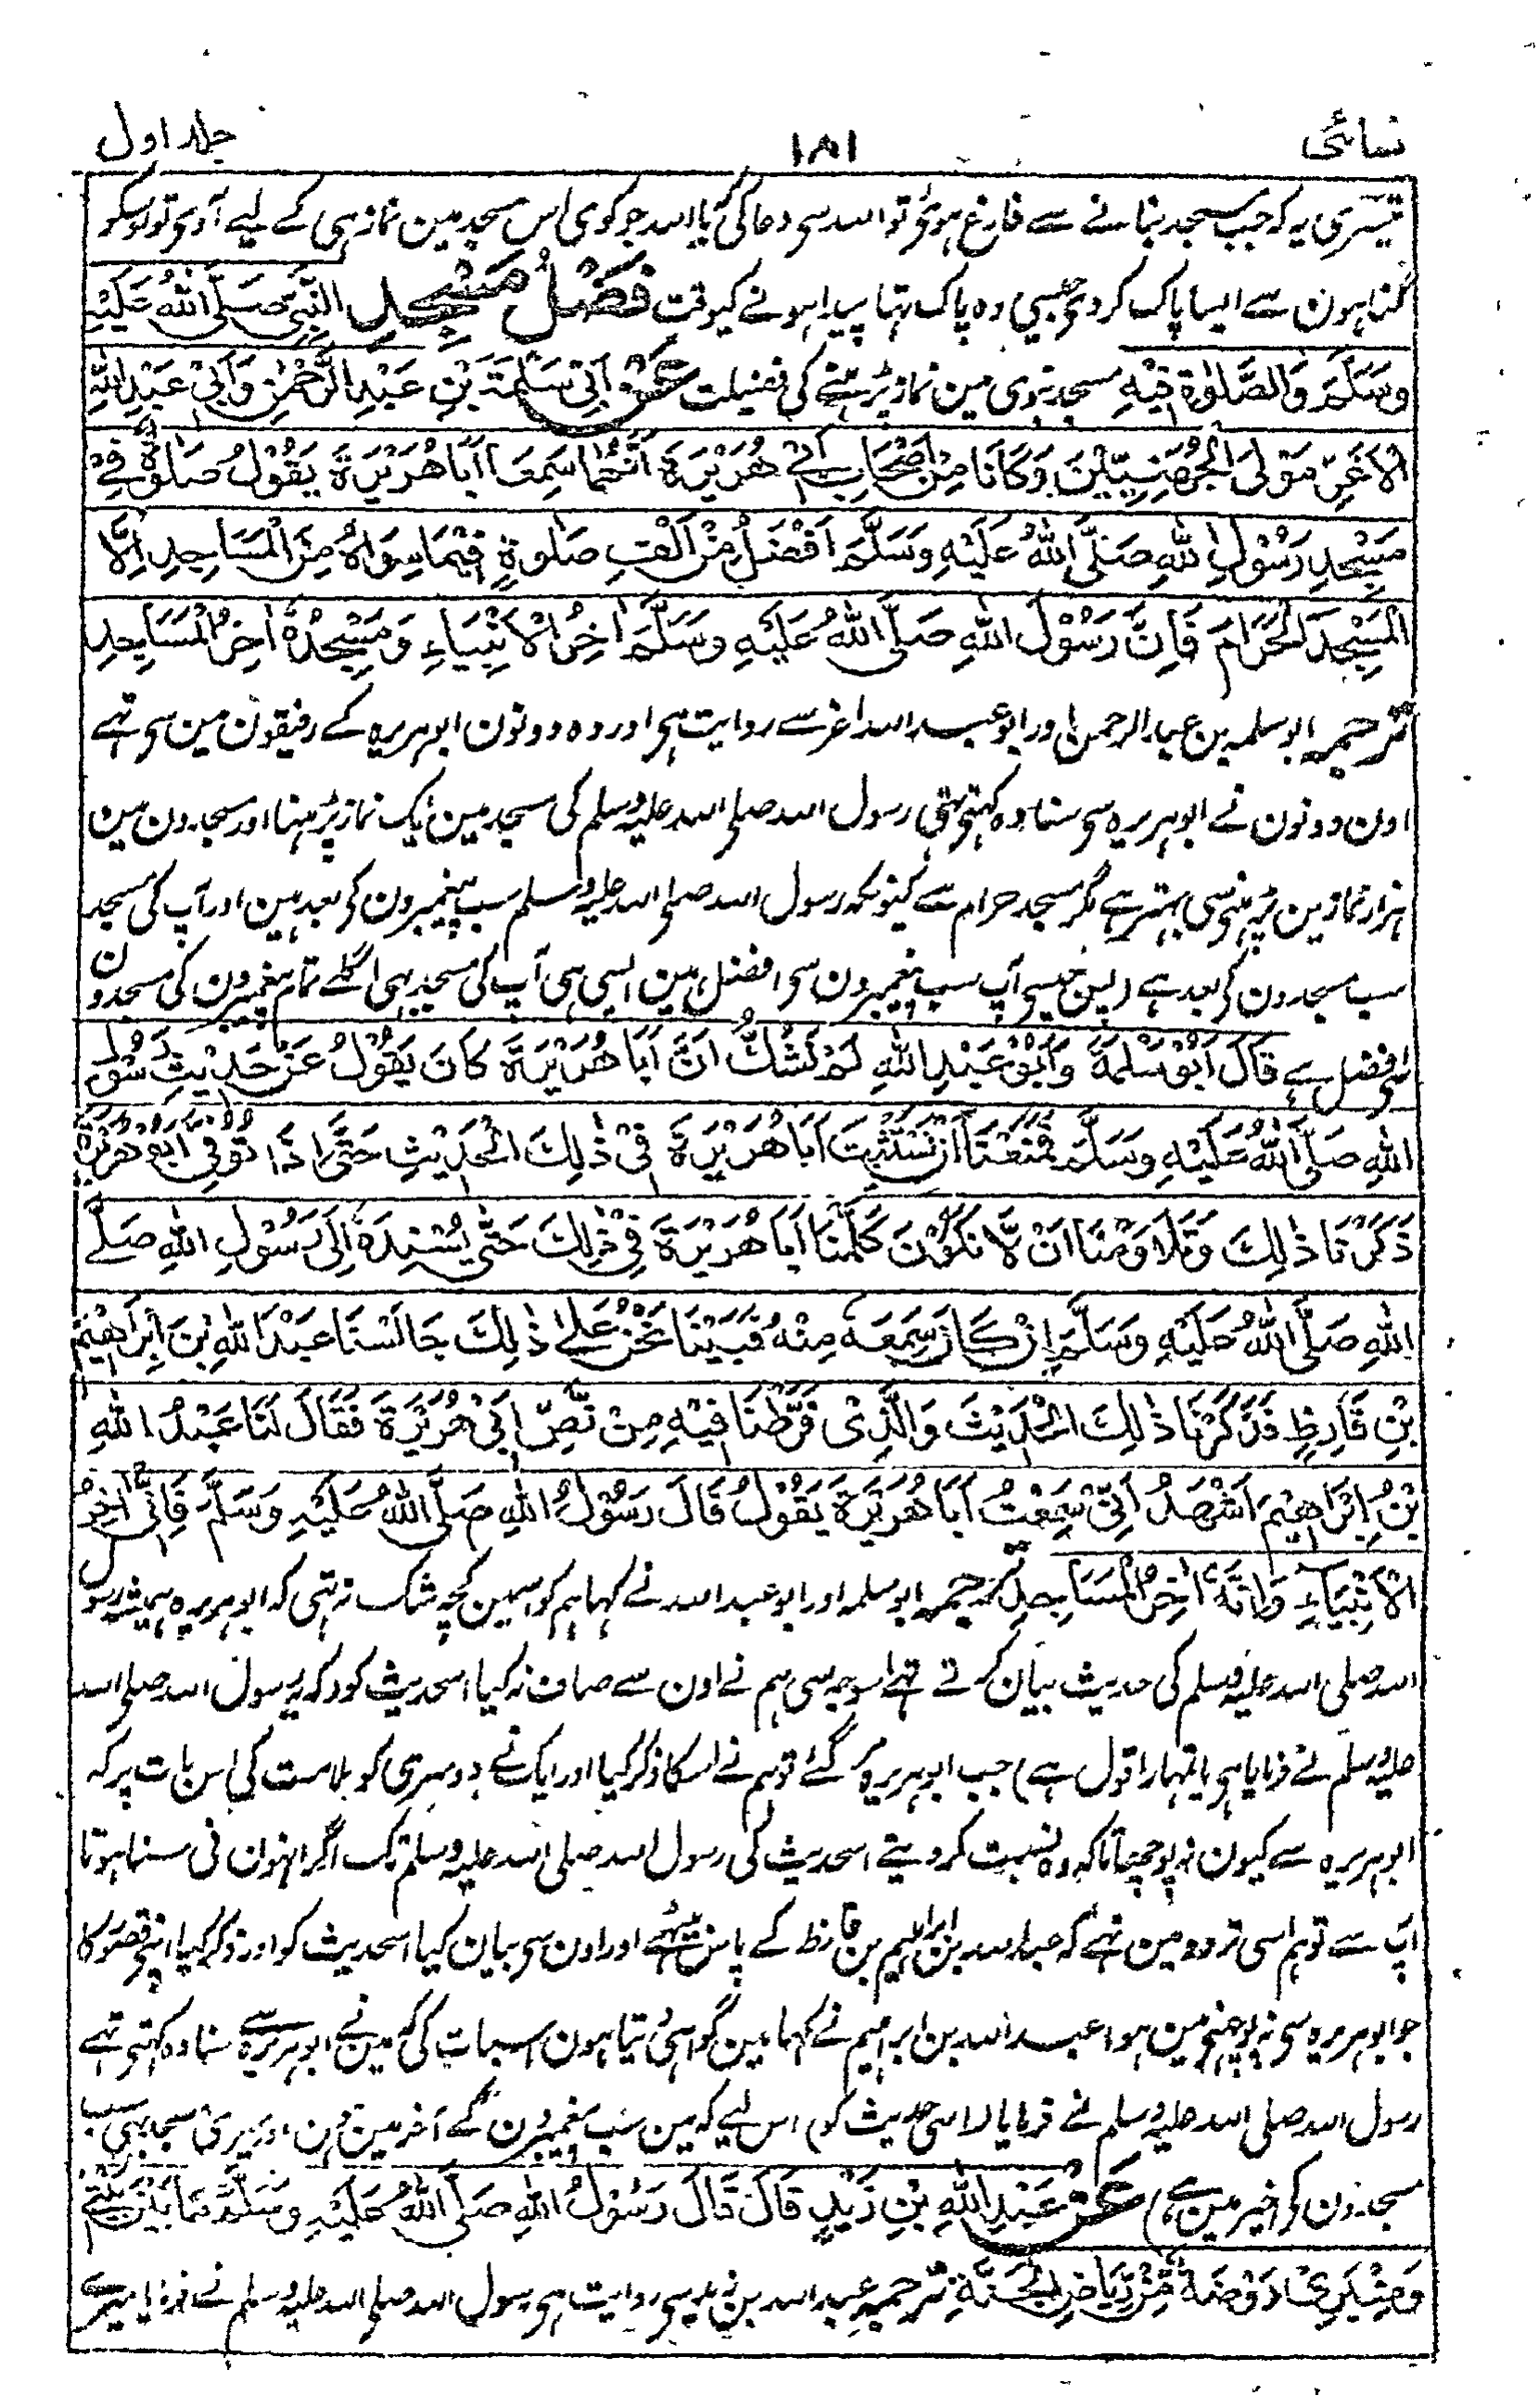 نسائی ۱۸۱ جلد اول
تیسری یہ کہ جب مسجد بنانے سے فارغ ہوئے تو اللہ سے دعا کی یا اللہ جو کوئی اس مسجد مین نماز ہی کے لیے آوے تو اوسکو
گناہون سے ایسا پاک کردے جیسے وہ پاک تہا پیدا ہونے کیوقت فَضْلُ مَسْجِدِ النَّبِيِّ صَلَّى اللهُ عَلَيْهِ
وَسَلَّمَ وَالصَّلٰوةِ فِيْهِ مسجد نبوی مین نماز پڑہنے کی فضیلت عَنْ اَبِيْ سَلَمَةَ بْنِ عَبْدِ الرَّحْمٰنِ وَاَبِيْ عَبْدِ اللهِ
الْاَغَرِّ مَوْلَى الْجُهَنِيِّيْنَ وَكَانَا مِنْ اَصْحَابِ اَبِيْ هُرَيْرَةَ اَنَّهُمَا سَمِعَا اَبَا هُرَيْرَةَ يَقُوْلُ صَلٰوةٌ فِيْ
مَسْجِدِ رَسُوْلِ اللهِ صَلَّى اللهُ عَلَيْهِ وَسَلَّمَ اَفْضَلُ مِنْ اَلْفِ صَلٰوةٍ فِيْمَا سِوَاهُ مِنَ الْمَسَاجِدِ اِلَّا
الْمَسْجِدَ الْحَرَامَ فَاِنَّ رَسُوْلَ اللهِ صَلَّى اللهُ عَلَيْهِ وَسَلَّمَ اٰخِرُ الْاَنْبِيَاءِ وَمَسْجِدُهٗ اٰخِرُ الْمَسَاجِدِ
ترجمہ ابو سلمہ بن عبد الرحمن اور ابو عبد اللہ اغر سے روایت ہے اور وہ دونون ابو ہریرہ کے رفیقون مین سے تہے
اون دونون نے ابو ہریرہ سے سنا وہ کہتے تہے رسول اللہ صلے اللہ علیہ وسلم کی مسجد مین ایک نماز پڑہنا اور مسجدون مین
ہزار نمازین پڑہنے سے بہتر ہے مگر مسجد حرام سے کیونکہ رسول اللہ صلے اللہ علیہ وسلم سب پیغمبرون کے بعد ہین اور آپ کی مسجد
سب مسجدون کے بعد ہے (یعنے جیسے آپ سب پیغمبرون سے افضل ہین ایسی ہی آپ کی مسجد بہی اگلے تمام پیغمبرون کی مسجدون
سے افضل ہے قَالَ اَبُوْ سَلَمَةَ وَاَبُوْ عَبْدِ اللهِ لَمْ نَشُكَّ اَنَّ اَبَا هُرَيْرَةَ كَانَ يَقُوْلُ عَنْ حَدِيْثِ رَسُوْلِ
اللهِ صَلَّى اللهُ عَلَيْهِ وَسَلَّمَ فَمَنَعَنَا اَنْ نَسْتَثْبِتَ اَبَا هُرَيْرَةَ فِيْ ذٰلِكَ الْحَدِيْثِ حَتّٰى اِذَا تُوُفِّيَ اَبُوْ هُرَيْرَةَ
ذَكَرْنَا ذٰلِكَ وَتَلَاوَمْنَا اَنْ لَّا نَكُوْنَ كَلَّمْنَا اَبَا هُرَيْرَةَ فِيْ ذٰلِكَ حَتّٰى يُسْنِدَهٗ اِلٰى رَسُوْلِ اللهِ صَلَّى
اللهِ صَلَّى اللهُ عَلَيْهِ وَسَلَّمَ اِنْ كَانَ سَمِعَهٗ مِنْهُ فَبَيْنَا نَحْنُ عَلٰى ذٰلِكَ جَالَسْنَا عَبْدَ اللهِ بْنَ اِبْرَاهِيْمَ
بْنِ قَارِظٍ فَذَكَرْنَا ذٰلِكَ الْحَدِيْثَ وَالَّذِيْ فَرَّطْنَا فِيْهِ مِنْ نَّصِّ اَبِيْ هُرَيْرَةَ فَقَالَ لَنَا عَبْدُ اللهِ
بْنُ اِبْرَاهِيْمَ اَشْهَدُ اَنِّيْ سَمِعْتُ اَبَا هُرَيْرَةَ يَقُوْلُ قَالَ رَسُوْلُ اللهِ صَلَّى اللهُ عَلَيْهِ وَسَلَّمَ فَاِنِّيْ اٰخِرُ
الْاَنْبِيَاءِ وَاِنَّهٗ اٰخِرُ الْمَسَاجِدِ ترجمہ ابو سلمہ اور ابو عبد اللہ نے کہا ہم کو اسمین کچہ شک نہ تہی کہ ابو ہریرہ ہمیشہ رسول
اللہ صلی اللہ علیہ وسلم کی حدیث بیان کرتے تہے اسوجہ سی ہم نے اون سے صاف نہ کیا اسحدیث کو (کہ یہ رسول اللہ صلے اللہ
علیہ وسلم نے فرمایا ہے یا تمہارا قول ہے) جب ابو ہریرہ مر گئے تو ہم نے اسکا ذکر کیا اور ایک نے دوسری کو ملامت کی اس بات پر کہ
ابو ہریرہ سے کیون نہ پوچہا تاکہ وہ نسبت کر دیتے اسحدیث کی رسول اللہ صلی اللہ علیہ وسلم تک اگر انہون نی سنا ہوتا
آپ سے تو ہم اسی تردد مین تہے کہ عبد اللہ بن ابراہیم بن قارظ کے پاس بیٹہے اور اون سے بیان کیا اسحدیث کو اور ذکر کیا اپنے قصور کا
جو ابو ہریرہ سے نہ پوچہنے مین ہوا عبد اللہ بن ابراہیم نے کہا مین گواہی دیتا ہون اسبات کی کہ مین نے ابو ہریرہ سے سنا وہ کہتے تہے
رسول اللہ صلی اللہ علیہ وسلم نے فرمایا (اسی حدیث کو) اس لیے کہ مین سب پیغمبرون کے آخر مین ہون اور میری مسجد بہی سب
مسجدون کے اخیر مین ہے) عَنْ عَبْدِ اللهِ بْنِ زَيْدٍ قَالَ قَالَ رَسُوْلُ اللهِ صَلَّى اللهُ عَلَيْهِ وَسَلَّمَ مَا بَيْنَ بَيْتِيْ
وَمِنْبَرِيْ رَوْضَةٌ مِّنْ رِّيَاضِ الْجَنَّةِ ترجمہ عبد اللہ بن زید سے روایت ہے رسول اللہ صلے اللہ علیہ وسلم نے فرمایا میرے